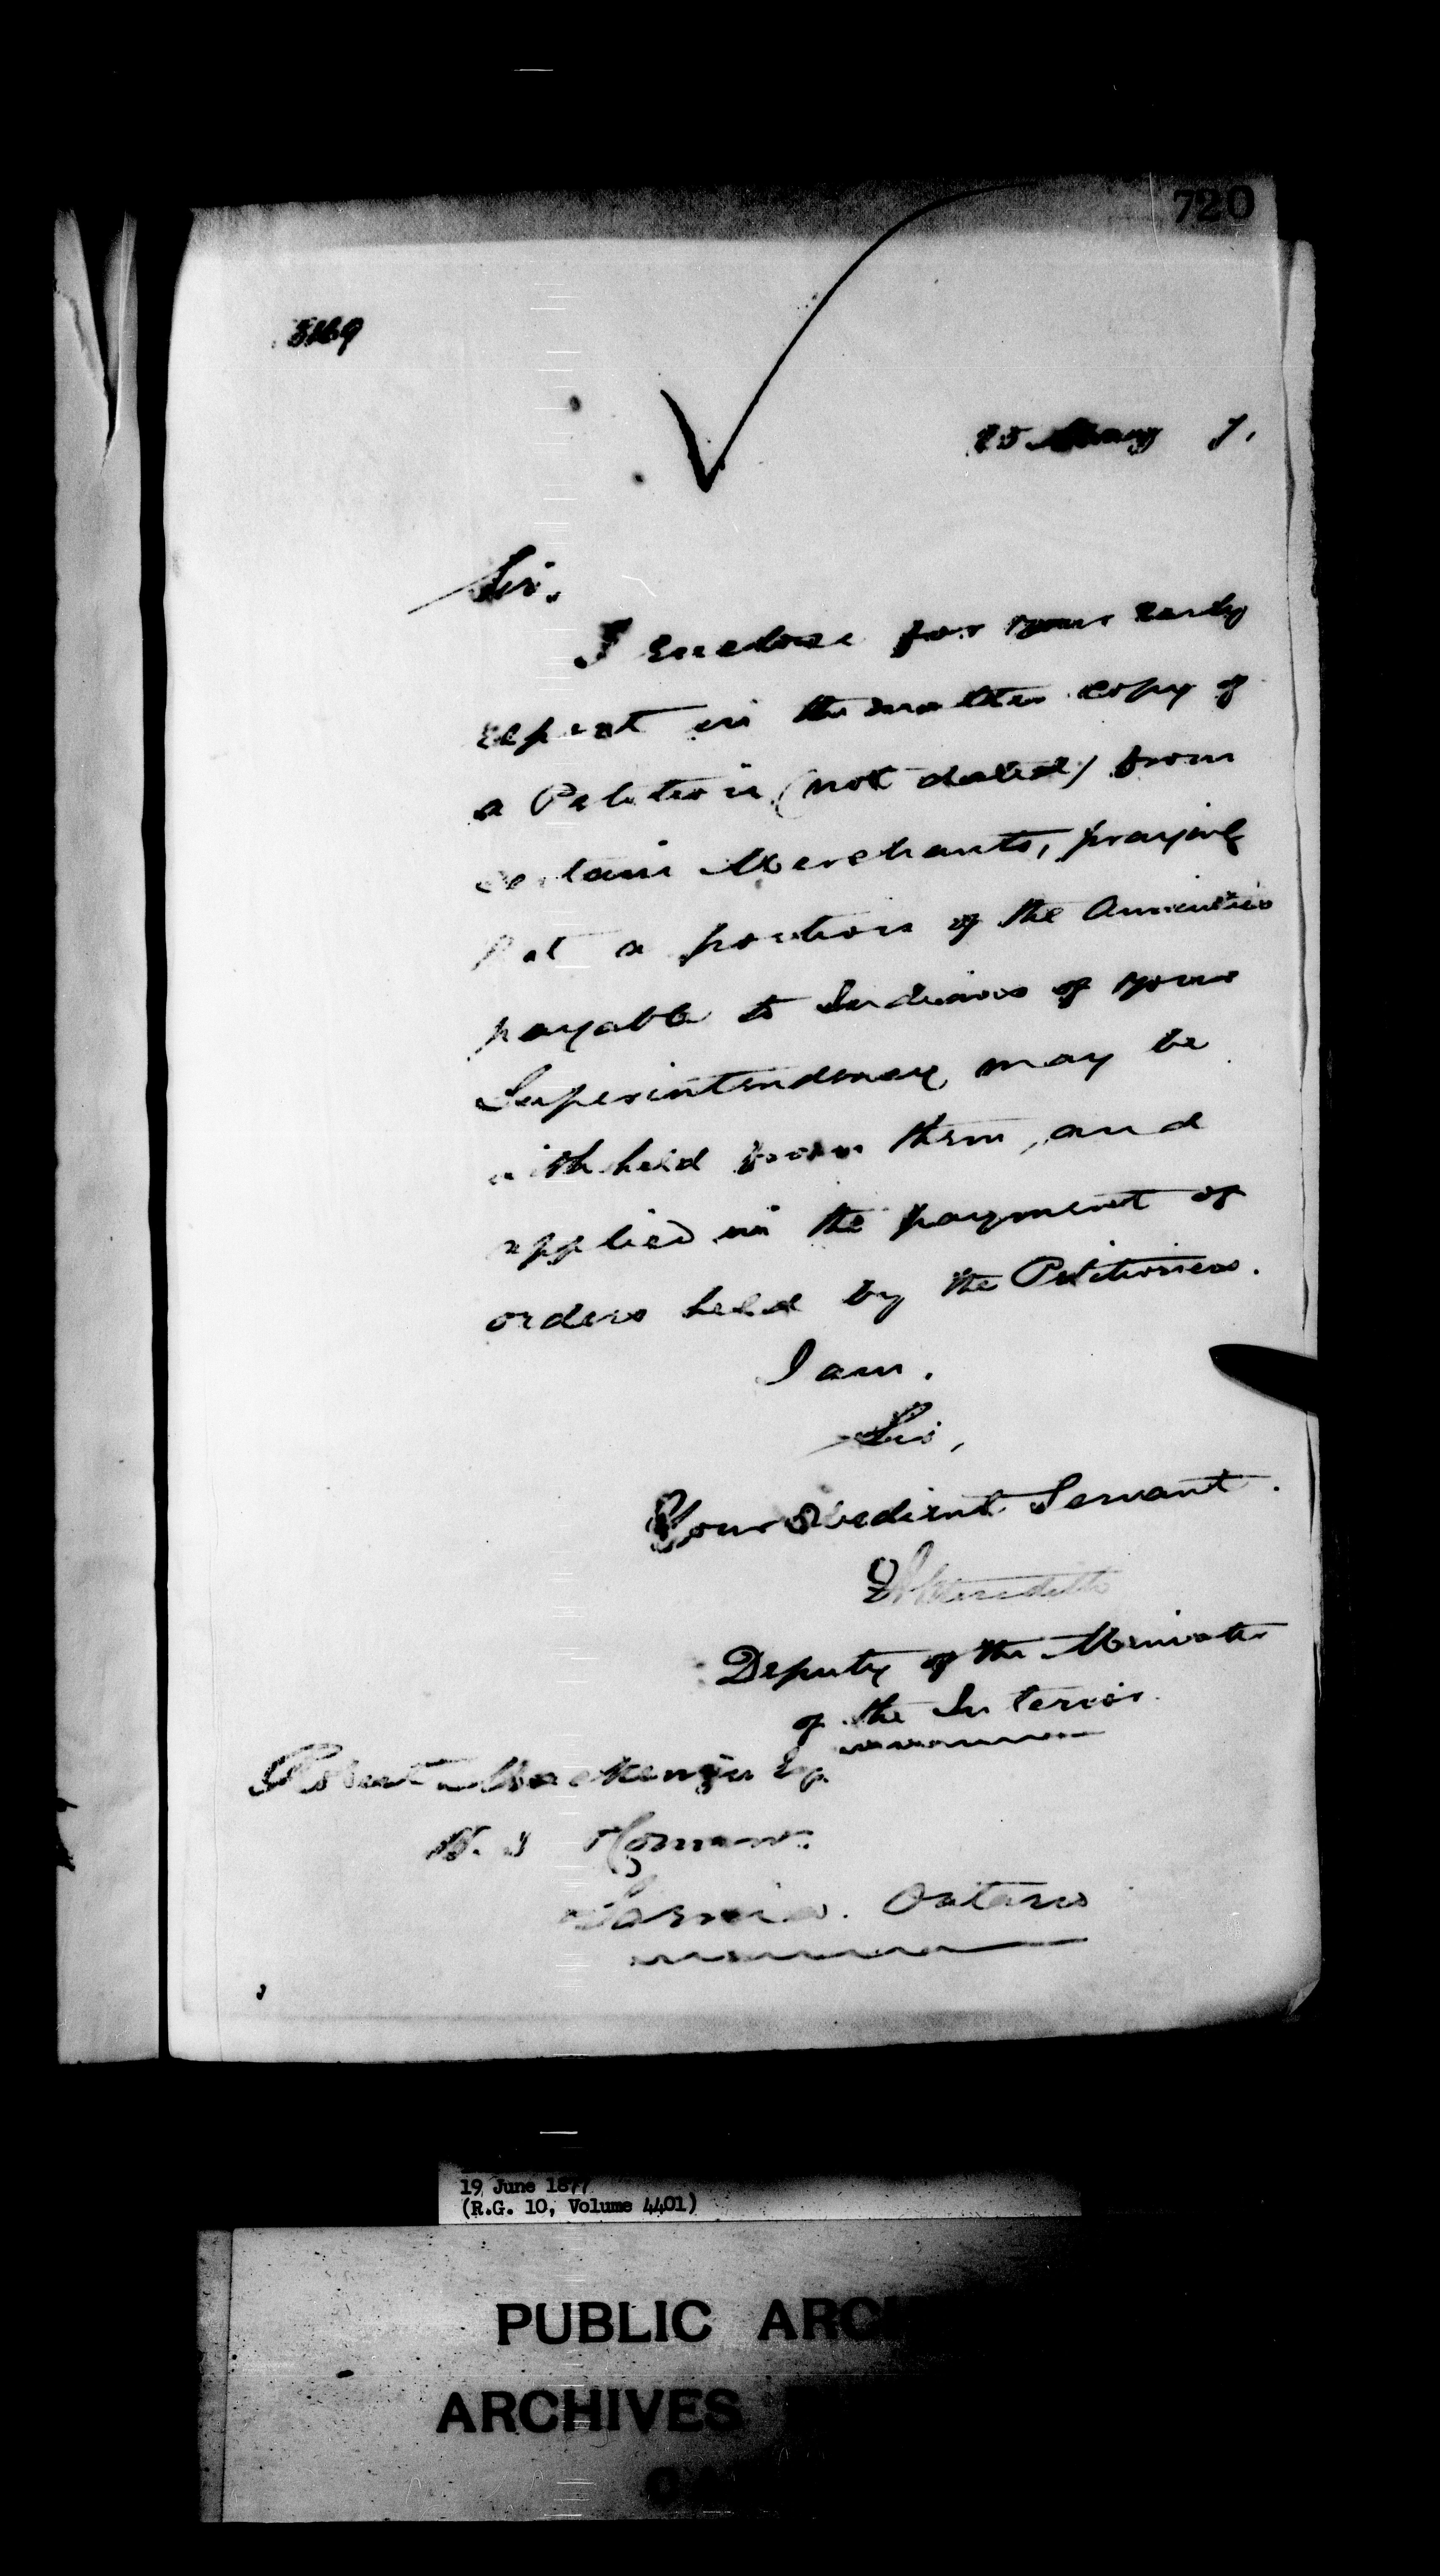 720
25 May 7.
Sir.
I enclose for your early
report in the matter copy of
a Petition (not dated) from
certain Merchants, praying
that a portion of the Annuities
payable to Indians of your
Superintendency may be
withheld from them, and
applied in the payment of
orders held by the Petitioners.
I am.
Sir,
Your Obedient Servant.
Meredith
Deputy of the Minister
of the Interior.
Robert Mackenzie Esq.
Sarnia. Ontario
19 June 1877
(R.G. 10, Volume 4401)
PUBLIC ARC
ARCHIVES